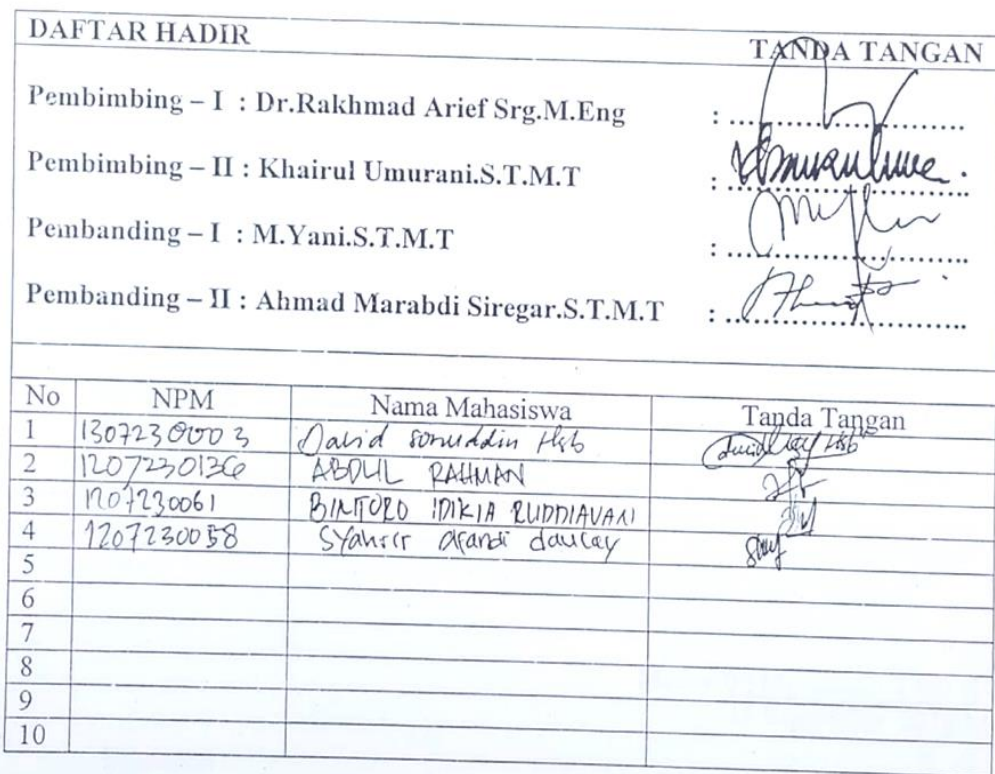 DAFTAR HADIR
TANDA TANGAN
Pembimbing – I : Dr.Rakhmad Arief Srg.M.Eng : ..............................
Pembimbing – II : Khairul Umurani.S.T.M.T : ..............................
Pembanding – I : M.Yani.S.T.M.T : ..............................
Pembanding – II : Ahmad Marabdi Siregar.S.T.M.T : ..............................
No NPM Nama Mahasiswa Tanda Tangan
1 1307230003 David Hsb
2 1207230136 ABDUL RAHMAN
3 1207230061 BINTORO
4 1207230058 daulay
5
6
7
8
9
10